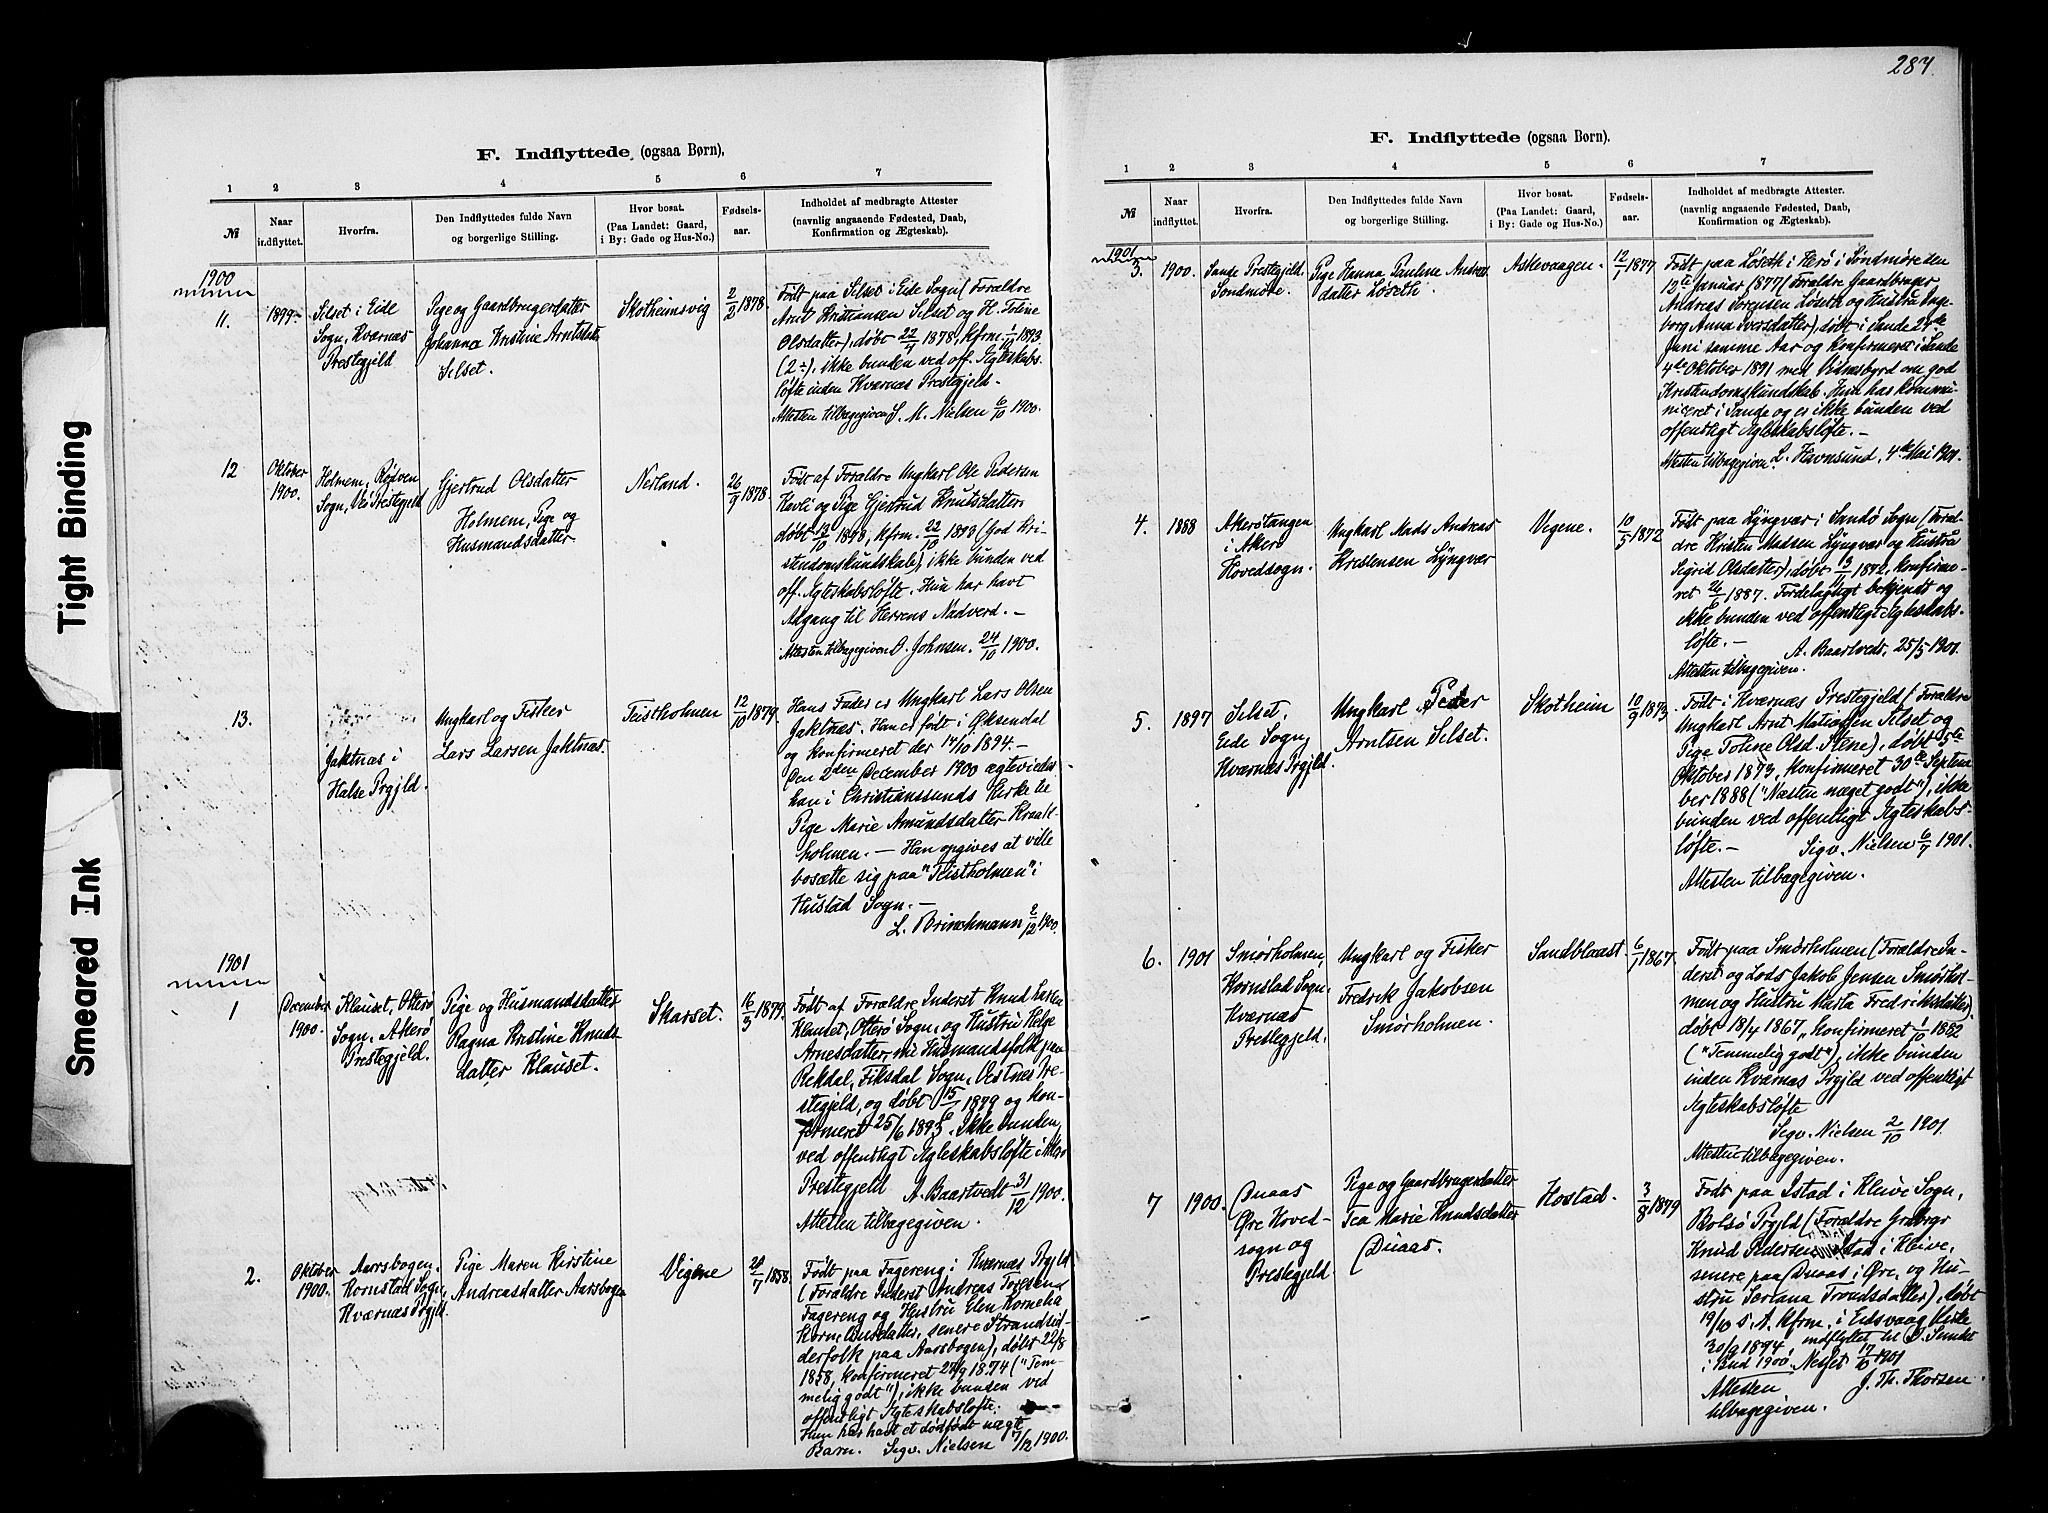 Tight Binding
Smeared Ink
F. Indflyttede (ogsaa Børn).
1 2 3 4 5 6 7
№
Naar
indflyttet.
Hvorfra.
Den Indflyttedes fulde Navn
og borgerlige Stilling.
Hvor bosat.
(Paa Landet: Gaard,
i By: Gade og Hus-No.)
Fødsels-
aar.
Indholdet af medbragte Attester
(navnlig angaaende Fødested, Daab,
Konfirmation og Ægteskab).
1900
11.
1899
Silset i Eide
Sogn, Kværnæs
Prestegjeld
Pige og Gaardbrugerdatter
Johanna Kristine Arntsdatter
Silset.
Skotheimsvig
2/2 1878
Født paa Silset i Eide Sogn (Forældre
Arnt Kristiansen Silset og H. Toline
Olsdatter), døbt 22/4 1878, kfrm. 1/10 1893.
(2 ÷), ikke bunden ved off. Ægteskabs-
løfte inden Kværnæs Prestegjeld.
Attesten tilbagegiven S. M. Nielsen 6/10 1900.
12
Oktober
1900.
Holmem, Rødven
Sogn, Veø Prestegjeld
Gjertrud Olsdatter
Holmem, Pige og
Husmandsdatter
Nerland.
26/9 1878
Født af Forældre Ungkarl Ole Pedersen
Hovli og Pige Gjertrud Knutsdatter,
døbt 13/10 1878, kfrm. 22/10 1893 (God Kri-
stendomskundskab), ikke bunden ved
off. Ægteskabsløfte. Hun har havt
Adgang til Herrens Nadverd. —
Attesten tilbagegiven O. Johnsen. 24/10 1900.
13.
Jaktnæs i
Halse Prgjld.
Ungkarl og Fisker
Lars Larsen Jaktnæs.
Teistholmen
12/10 1879.
Hans Fader er Ungkarl Lars Olsen
Jaktnæs. Han er født i Øksendal
og konfirmeret der 14/10 1894. —
Den 2den December 1900 ægteviedes
han i Christianssunds Kirke til
Pige Marie Amundsdatter Kraak-
holmen. — Han opgives at ville
bosætte sig paa "Teistholmen" i
Hustad Sogn. —
L. Brinchmann 2/12 1900.
1901
1
December
1900.
Klauset, Otterø
Sogn, Akerø
Prestegjeld.
Pige og Husmandsdatter
Ragna Kristine Knuds-
datter Klauset.
Skarset.
16/3 1879.
Født af Forældre Inderst Knud Larsen
Klauset, Otterø Sogn, og Hustru Helge
Arnesdatter, nu Husmandsfolk paa
Rekdal, Fiksdal Sogn, Vestnes Pre-
stegjeld, og døbt 15/6 1879 og kon-
firmeret 25/6 1893. Ikke bunden
ved offentligt Ægteskabsløfte i Akerø
Prestegjeld A. Baartvedt 31/12 1900.
Attesten tilbagegiven.
2.
Oktober
1900.
Aarsbogen,
Kornstad Sogn,
Kværnæs Prgjld.
Pige Maren Kirstine
Andreasdatter Aarsbogen
Vigene
20/7 1858.
Født paa Fagereng i Kværnæs Prgjld
(Forældre Inderst Andreas Toresen
Fagereng og Hustru Elen Kornelia
Korneliusdatter, senere Strandsid-
derfolk paa Aarsbogen), døbt 22/8
1858, konfirmeret 27/9 1874 ("Tem-
melig godt"), ikke bunden ved
offentligt Ægteskabsløfte.
Hun har havt et dødfødt uægte
Barn. Sigv. Nielsen 7/12 1900.
287.
F. Indflyttede (ogsaa Børn).
1 2 3 4 5 6 7
№
Naar
indflyttet.
Hvorfra.
Den Indflyttedes fulde Navn
og borgerlige Stilling.
Hvor bosat.
(Paa Landet: Gaard,
i By: Gade og Hus-No.)
Fødsels-
aar.
Indholdet af medbragte Attester
(navnlig angaaende Fødested, Daab,
Konfirmation og Ægteskab).
1901
3.
1900.
Sande Prestegjeld.
Søndmøre.
Pige Hanna Pauline Andreas-
datter Løseth.
Askevaagen.
12/1 1877
Født paa Løseth i Herø i Søndmøre den
12te Januar 1877 (Forældre Gaardbruger
Andreas Sørensen Løseth og Hustru Inge-
borg Anna Iversdatter), døbt i Sande 24de
Juni samme Aar og konfirmeret i Sande
4de Oktober 1891 med Vidnesbyrd om god
Kristendomskundskab. Hun har kommu-
niceret i Sande og er ikke bunden ved
offentligt Ægteskabsløfte. —
Attesten tilbagegiven. L. Havnsund, 4de Mai 1901.
4.
1888
Akerøtangen
i Akerø
Hovedsogn.
Ungkarl Mads Andreas
Kristensen Lyngvær
Vigene.
10/5 1872
Født paa Lyngvær i Sandø Sogn (Foræl-
dre Kristen Madsen Lyngvær og Hustru
Sigrid Olsdatter), døbt 13/ 1872, konfirme-
ret 26/6 1887. Fordelagtigt bekjendt og
ikke bunden ved offentligt Ægteskabs-
løfte. — A. Baartvedt, 25/5 1901.
Attesten tilbagegiven.
5.
1897
Silset,
Eide Sogn,
Kværnæs Prgjld.
Ungkarl Peder
Arntsen Silset.
Skotheim
10/9 1873
Født i Kværnæs Prestegjeld (Forældre
Ungkarl Arnt Mathisen Silset og
Pige Toline Olsd. Stene), døbt 5te
Oktober 1873, konfirmeret 30te Septem-
ber 1888 ("Næsten meget godt"), ikke
bunden ved offentligt Ægteskabs-
løfte. — Sigv. Nielsen 6/7 1901.
Attesten tilbagegiven.
6.
1901
Smørholmen,
Kornstad Sogn,
Kværnæs
Prestegjeld.
Ungkarl og Fisker
Fredrik Jakobsen
Smørholmen.
Sandblaast
6/1 1867.
Født paa Smørholmen (Forældre In-
derst og Lods Jakob Jensen Smørhol-
men og Hustru Marta Fredriksdatter),
døbt 18/4 1867, konfirmeret 1/10 1882
("Temmelig godt"), ikke bunden
inden Kværnæs Prgjld ved offentligt
Ægteskabsløfte
Sigv. Nielsen 2/10 1901.
Attesten tilbagegiven.
7
1900.
Duaas
Øre Hoved-
sogn og
Prestegjeld.
Pige og Gaardbrugerdatter
Tea Marie Knudsdatter
Duaas.
Hostad.
3/8 1879
Født paa Istad i Kleive Sogn,
Bolsø Prgjld (Forældre Grdbrgr
Knud Pedersen Istad i Kleive,
senere paa Duaas i Øre, og Hu-
stru Soriana Trondsdatter), døbt
19/10 s. A. kfrm. i Eidsvaag Kirke
30/9 1894, indflyttet til
i Bud 1900. Nesset 17/10 1901
Attesten J. Th. Thorsen.
tilbagegiven.